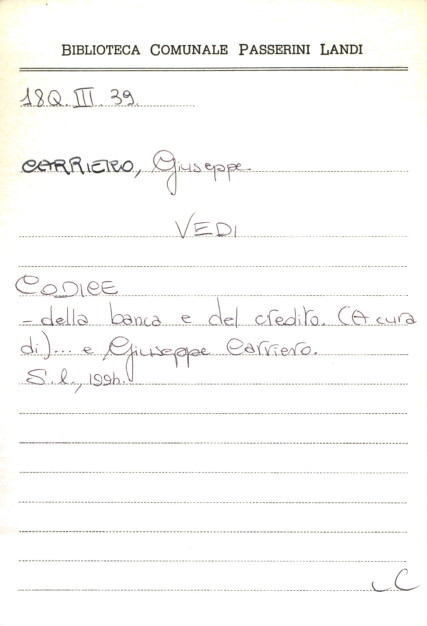 BIBLIOTECA COMUNALE PASSERINI LANDI
18Q. III. 39.
CARRIERO, Giuseppe.
VEDI
CODICE
- della banca e del credito. (A cura
di)... e Giuseppe Carriero.
S.l., 1994.